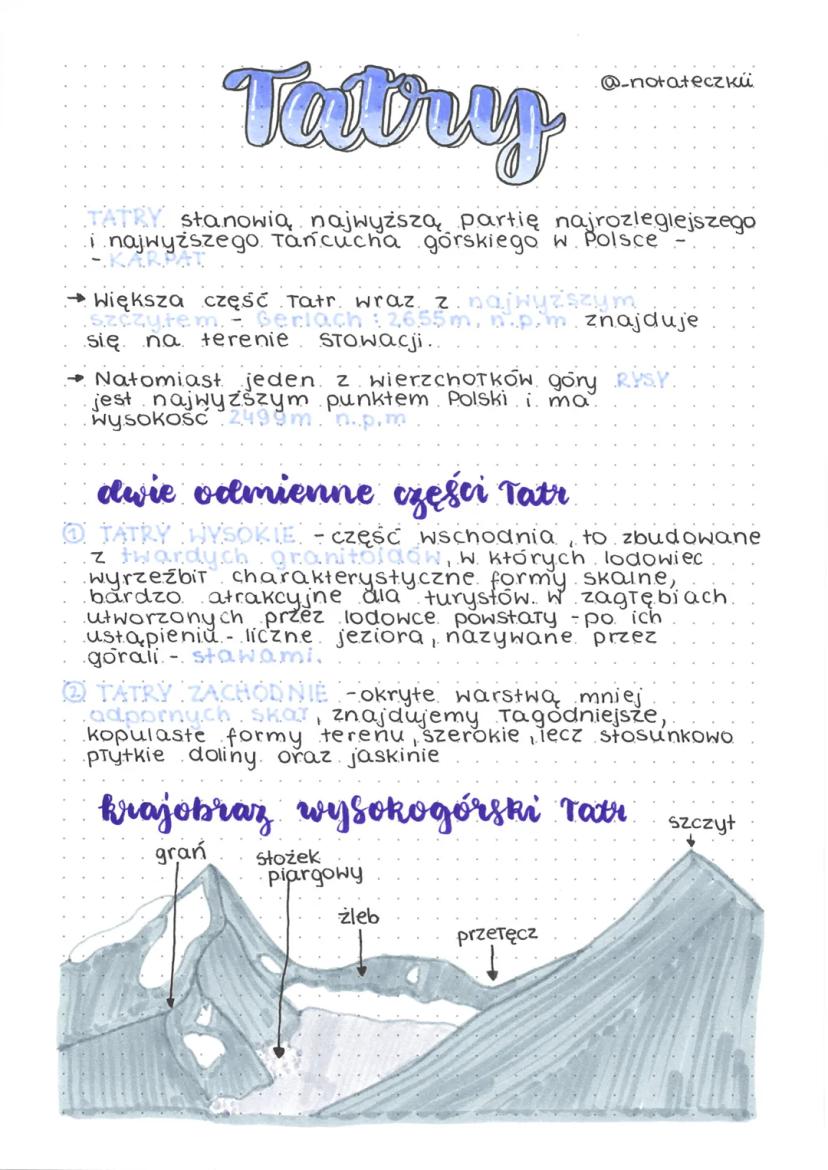 Tatry
@_notateczkii
TATRY stanowią najwyższą partię najrozleglejszego
i najwyższego łańcucha górskiego w Polsce -
- KARPAT
→ Większa część Tatr wraz z najwyższym
szczytem - Gerlach : 2655m. n.p.m znajduje
się na terenie Słowacji.
→ Natomiast jeden z wierzchołków góry RYSY
jest najwyższym punktem Polski i ma
wysokość 2499m n.p.m
dwie odmienne części Tatr
① TATRY WYSOKIE - część wschodnia, to zbudowane
z twardych granitoidów, w których lodowiec
wyrzeźbił charakterystyczne formy skalne,
bardzo atrakcyjne dla turystów. W zagłębiach
utworzonych przez lodowce powstały - po ich
ustąpieniu - liczne jeziora, nazywane przez
górali - stawami.
② TATRY ZACHODNIE - okryte warstwą mniej
odpornych skał, znajdujemy łagodniejsze,
kopulaste formy terenu, szerokie, lecz stosunkowo
płytkie doliny oraz jaskinie
krajobraz wysokogórski Tatr
szczyt
grań
stożek
piargowy
żleb
przełęcz